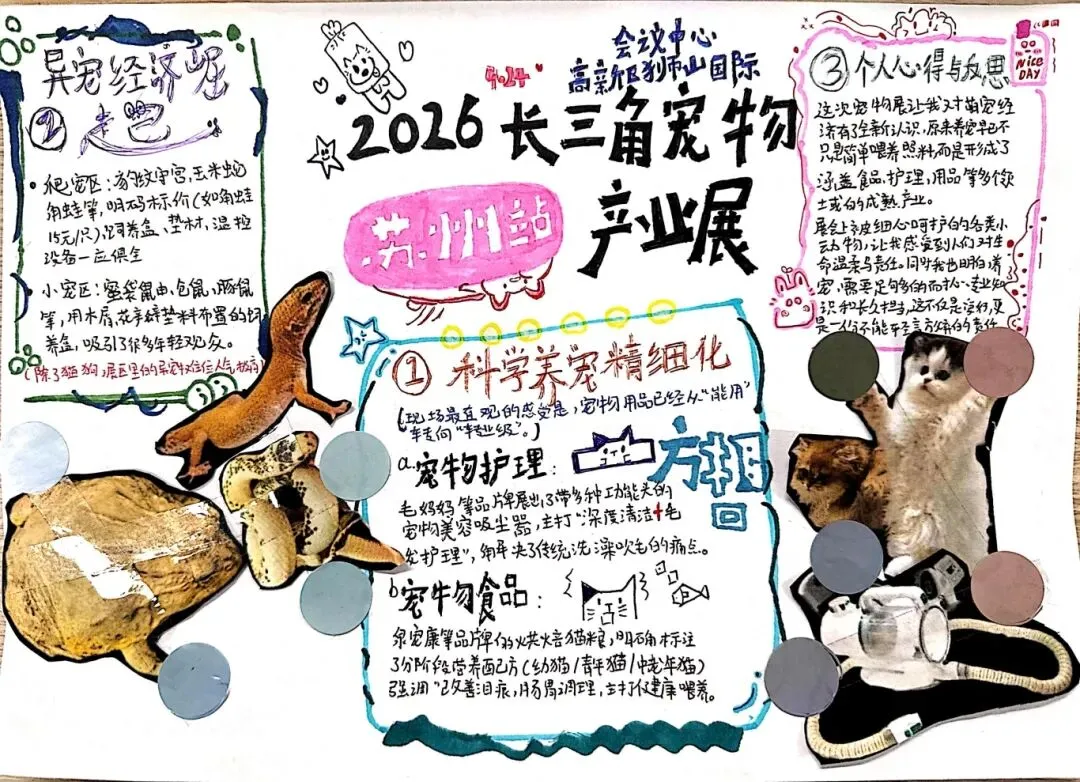 会议中心
4.24
高新区狮山国际
2026长三角宠物
产业展
苏州站
①科学养宠精细化
(现场最直观的感受是，宠物用品已经从"能用"
转向"专业级"。)
a.宠物护理：
毛妈妈等品牌展出了带多种功能头的
宠物美容吸尘器，主打"深度清洁+毛
发护理"，解决了传统洗澡吹毛的痛点。
b宠物食品：
泉宠康等品牌的烘焙猫粮，明确标注
了分阶段营养配方(幼猫/青年猫/中老年猫)
强调"改善泪痕，肠胃调理，主打健康喂养。
异宠经济崛
②起
爬宠区：豹纹守宫，玉米蛇
角蛙等，明码标价(如角蛙
15元/只)，饲养盒、垫材，温控
设备一应俱全
小宠区：蜜袋鼯、仓鼠、豚鼠
等，用木屑、花手碎垫料布置的饲
养盒，吸引了很多年轻观众。
(除了猫狗，展区里的异宠
③个人心得与反思
Nice
DAY
这次宠物展让我对萌宠经
济有了全新认识，原来养宠早已不
只是简单喂养照料，而是形成了
涵盖食品，护理，用品等多个领
域的成熟产业。
展会上被细心呵护的各类小
动物，让我感受到人们对生
命温柔与责任。同时我也明白养
宠，需要足够多的而扒心专业知
识和长久担当，这不仅是喜好，更
是一份不能